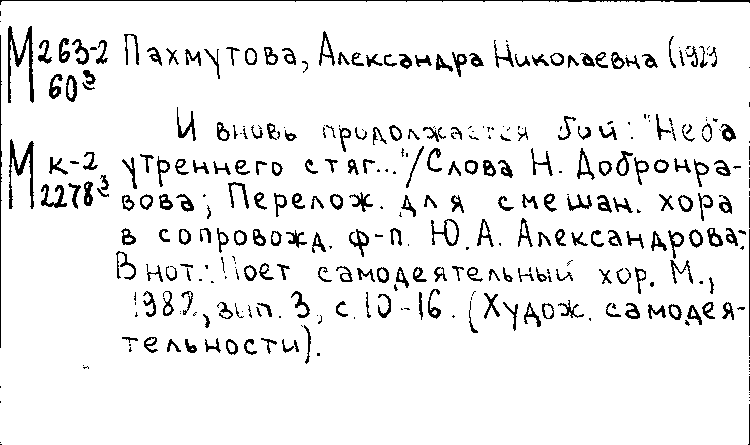 М 263-2 Пахмутова, Александра Николаевна (1929
60³
И вновь продолжается бой: "Неба
М к-2 утреннего стяг..."/Слова Н. Добронра-
2278³ вова; Перелож. для смешан. хора
в сопровожд. ф-п. Ю.А. Александрова;
В нот.: Поет самодеятельный хор. М.,
1982, вып. 3, с. 10-16. (Худож. самодея-
тельности).